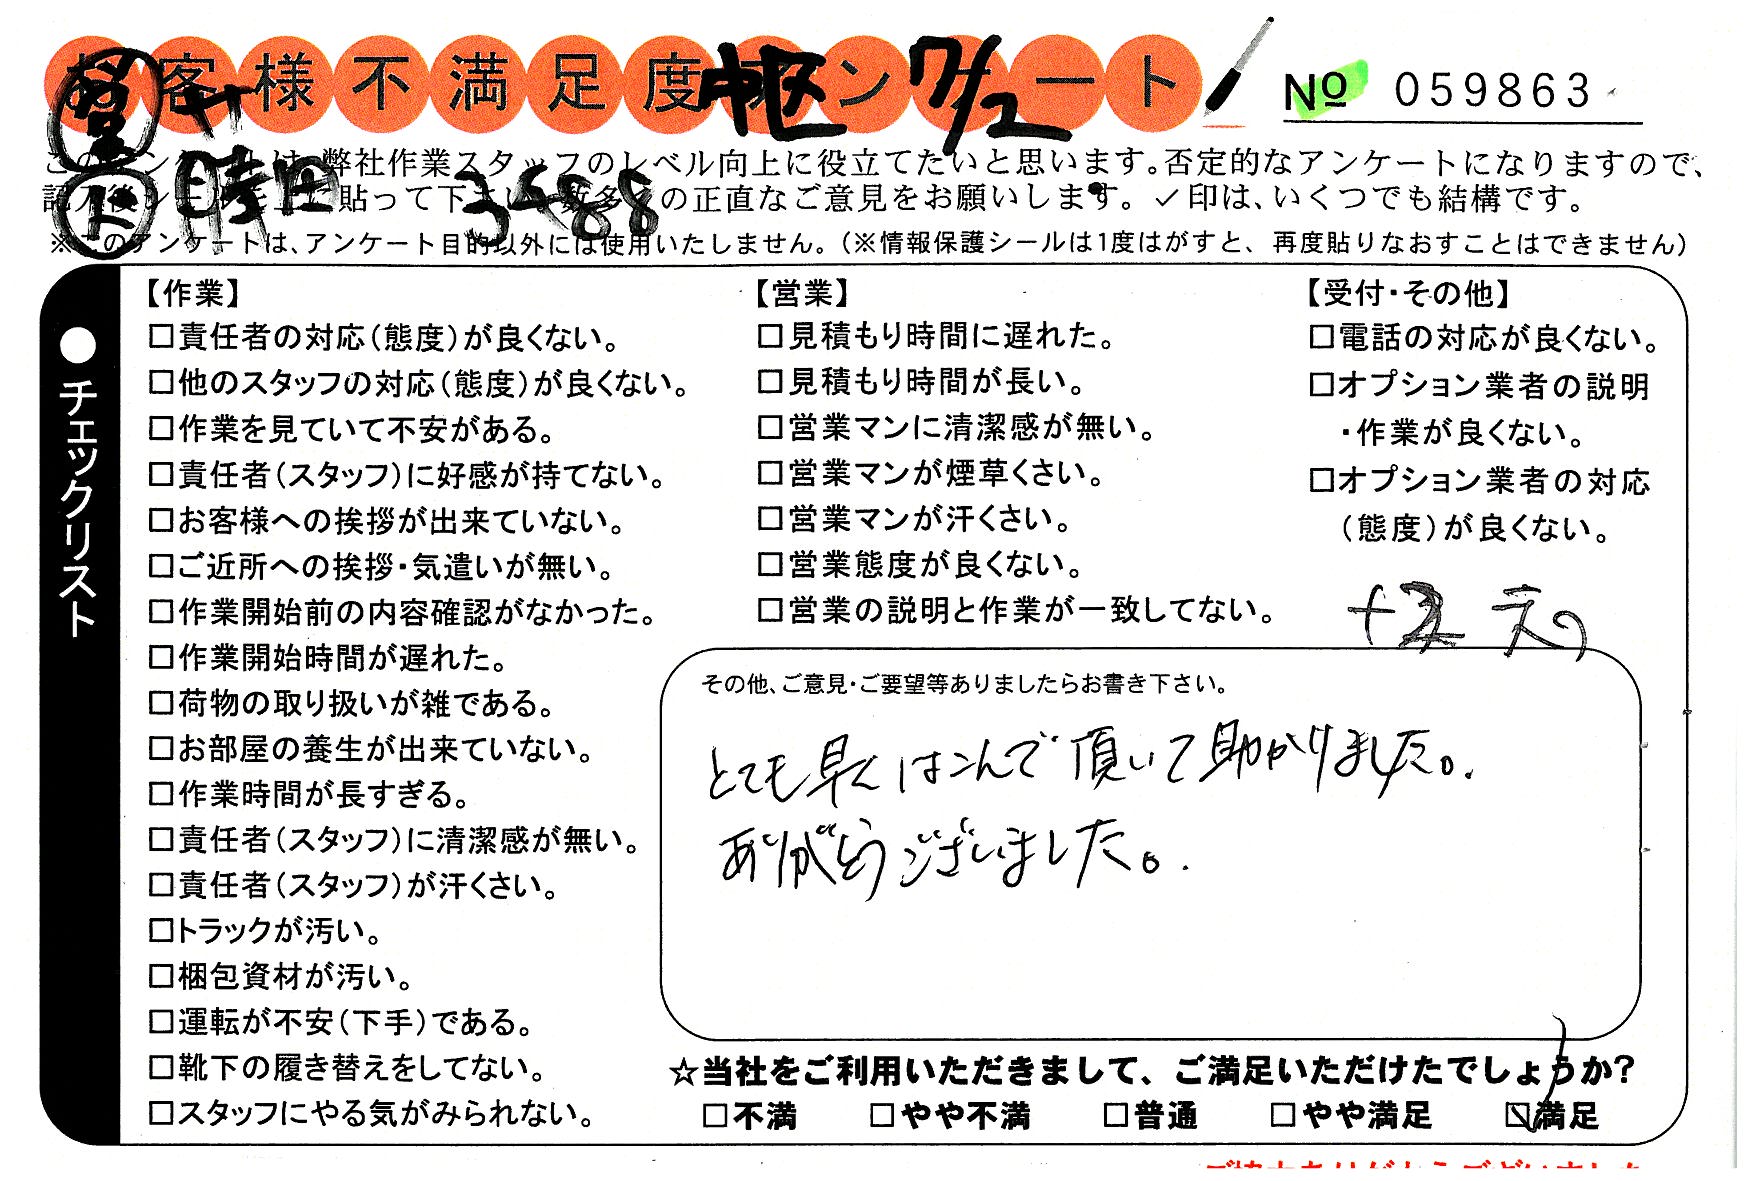 お客様不満足度アンケート
中区 7/2
No 059863
このアンケートは、弊社作業スタッフのレベル向上に役立てたいと思います。否定的なアンケートになりますので、
記入後シールを上に貼って下さい。数多くの正直なご意見をお願いします。✓印は、いくつでも結構です。
3488
※このアンケートは、アンケート目的以外には使用いたしません。(※情報保護シールは1度はがすと、再度貼りなおすことはできません)
●チェックリスト
【作業】
□責任者の対応(態度)が良くない。
□他のスタッフの対応(態度)が良くない。
□作業を見ていて不安がある。
□責任者(スタッフ)に好感が持てない。
□お客様への挨拶が出来ていない。
□ご近所への挨拶・気遣いが無い。
□作業開始前の内容確認がなかった。
□作業開始時間が遅れた。
□荷物の取り扱いが雑である。
□お部屋の養生が出来ていない。
□作業時間が長すぎる。
□責任者(スタッフ)に清潔感が無い。
□責任者(スタッフ)が汗くさい。
□トラックが汚い。
□梱包資材が汚い。
□運転が不安(下手)である。
□靴下の履き替えをしてない。
□スタッフにやる気がみられない。
【営業】
□見積もり時間に遅れた。
□見積もり時間が長い。
□営業マンに清潔感が無い。
□営業マンが煙草くさい。
□営業マンが汗くさい。
□営業態度が良くない。
□営業の説明と作業が一致してない。
【受付・その他】
□電話の対応が良くない。
□オプション業者の説明
・作業が良くない。
□オプション業者の対応
(態度)が良くない。
その他、ご意見・ご要望等ありましたらお書き下さい。
とても早くはこんで頂いて助かりました。
ありがとうございました。
☆当社をご利用いただきまして、ご満足いただけたでしょうか?
□不満 □やや不満 □普通 □やや満足 ☑満足
ご協力ありがとうございました